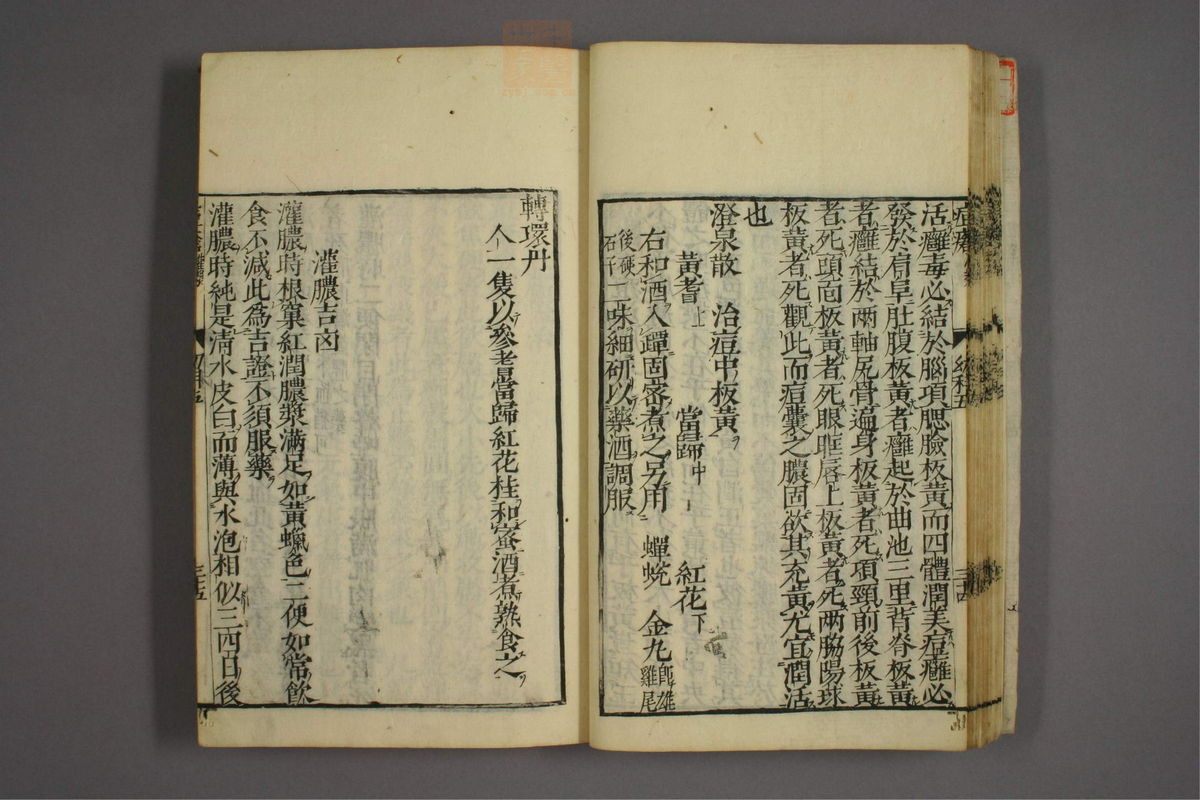 活癰毒必結於腦項腮臉板黃而四體潤美痘癰必
發於肩阜肚腹板黃者癰起於曲池三里背脊板黃
者癰結於兩軸尻骨遍身板黃者死項頸前後板黃
者死頭面板黃者死眼眶唇上板黃者死兩脇陽球
板黃者死觀此而痘囊之膿固欲其充黃尤宜潤活
也
澄泉散 治痘中板黃
黃耆上 當歸中 紅花下
右和酒入罈固密煮之另用 蟬蛻 金丸即雄雞尾
後硬石子二味細研以藥酒調服
轉環丹
一隻以參耆當歸紅花桂和蜜酒煮熟食之
灌膿吉凶
灌膿時根窠紅潤膿漿滿足如黃蠟色二便如常飲
食不減此為吉證不須服藥
灌膿時純是清水皮白而薄與水泡相似三四日後